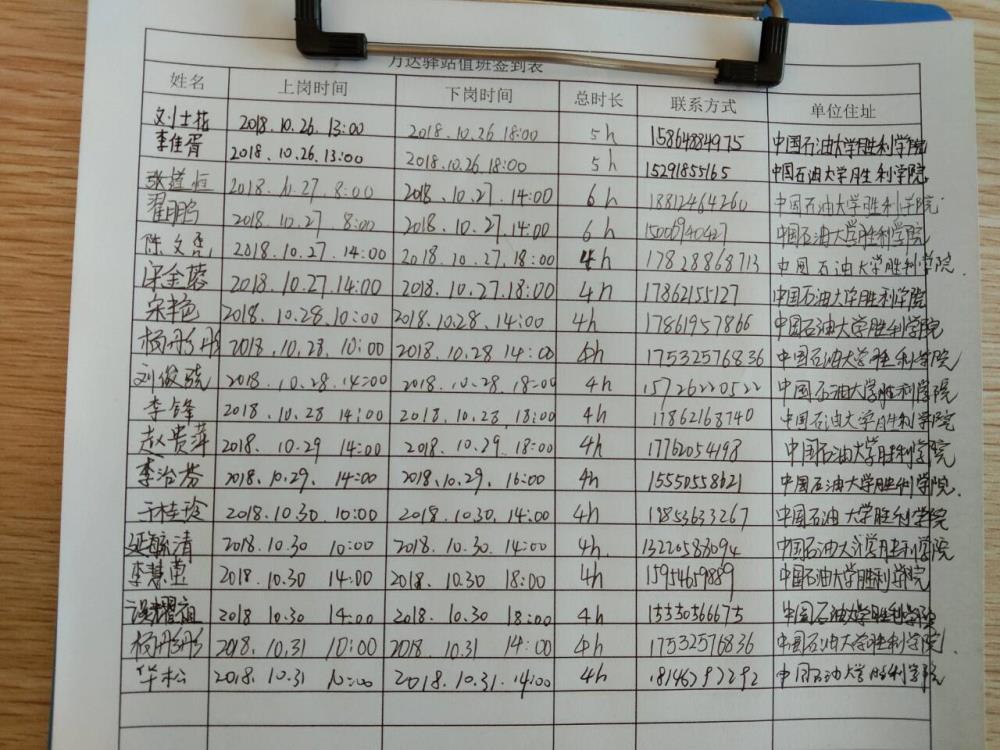 万达驿站值班签到表
姓名 上岗时间 下岗时间 总时长 联系方式 单位住址
刘士花 2018.10.26.13:00 2018.10.26 18:00 5h 15864884975 中国石油大学胜利学院
李佳胥 2018.10.26.13:00 2018.10.26 18:00 5h 15291855165 中国石油大学胜利学院
2018.10.27.8:00 2018.10.27.14:00 6h 18812464260 中国石油大学胜利学院
翟鹏 2018.10.27 8:00 2018.10.27.14:00 6h 中国石油大学胜利学院
陈文亮 2018.10.27.14:00 2018.10.27.18:00 4h 17828868713 中国石油大学胜利学院.
梁金蓉 2018.10.27.14:00 2018.10.27.18:00 4h 17862155127 中国石油大学胜利学院
宋艳 2018.10.28.10:00 2018.10.28.14:00 4h 17861957866 中国石油大学胜利学院
杨彤彤 2018.10.28.10:00 2018.10.28.14:00 4h 17532576836 中国石油大学胜利学院
刘俊骁 2018.10.28.14:00 2018.10.28.18:00 4h 15726220522 中国石油大学胜利学院
李锋 2018.10.28 14:00 2018.10.28.18:00 4h 17862168740 中国石油大学胜利学院
赵贵萍 2018.10.29 14:00 2018.10.29.18:00 4h 17762054198 中国石油大学胜利学院
李治芬 2018.10.29. 14:00 2018.10.29. 16:00 4h 15550558621 中国石油大学胜利学院.
于桂玲 2018.10.30 10:00 2018.10.30.14:00 4h 17853633267 中国石油大学胜利学院
延毓清 2018.10.30 10:00 2018.10.30. 14:00 4h. 13220583094 中国石油大学胜利学院
李慧莹 2018.10.30 14:00 2018.10.30 18:00 4h 15954659889 中国石油大学胜利学院
2018.10.30 14:00 2018.10.30 18:00 4h 15550566675 中国石油大学胜利学院
杨彤彤 2018.10.31 10:00 2018.10.31 14:00 4h 17532576836 中国石油大学胜利学院.
华松 2018.10.31 10:00 2018.10.31.14:00 4h 18146292292 中国石油大学胜利学院